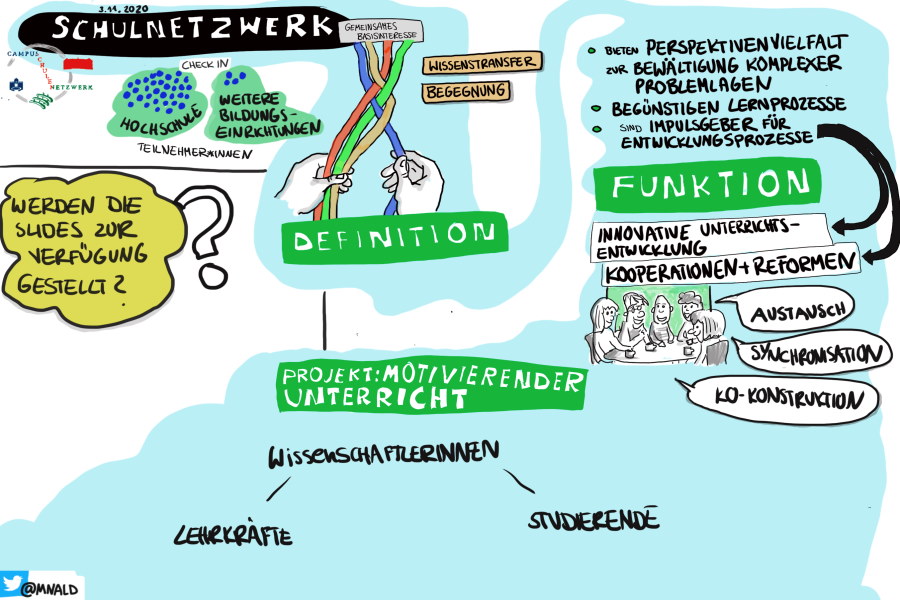 3.11.2020
SCHULNETZWERK
CAMPUS
SCHULE
NETZWERK
GEMEINSAMES
BASISINTERESSE
CHECK IN
HOCHSCHULE
WEITERE
BILDUNGS-
EINRICHTUNGEN
TEILNEHMER*INNEN
WISSENSTRANSFER
BEGEGNUNG
DEFINITION
WERDEN DIE
SLIDES ZUR
VERFÜGUNG
GESTELLT?
?
BIETEN PERSPEKTIVENVIELFALT
ZUR BEWÄLTIGUNG KOMPLEXER
PROBLEMLAGEN
BEGÜNSTIGEN LERNPROZESSE
SIND IMPULSGEBER FÜR
ENTWICKLUNGSPROZESSE
FUNKTION
INNOVATIVE UNTERRICHTS-
ENTWICKLUNG
KOOPERATIONEN + REFORMEN
AUSTAUSCH
SYNCHRONISATION
KO-KONSTRUKTION
PROJEKT: MOTIVIERENDER
UNTERRICHT
WISSENSCHAFTLERINNEN
LEHRKRÄFTE
STUDIERENDE
@MNALD